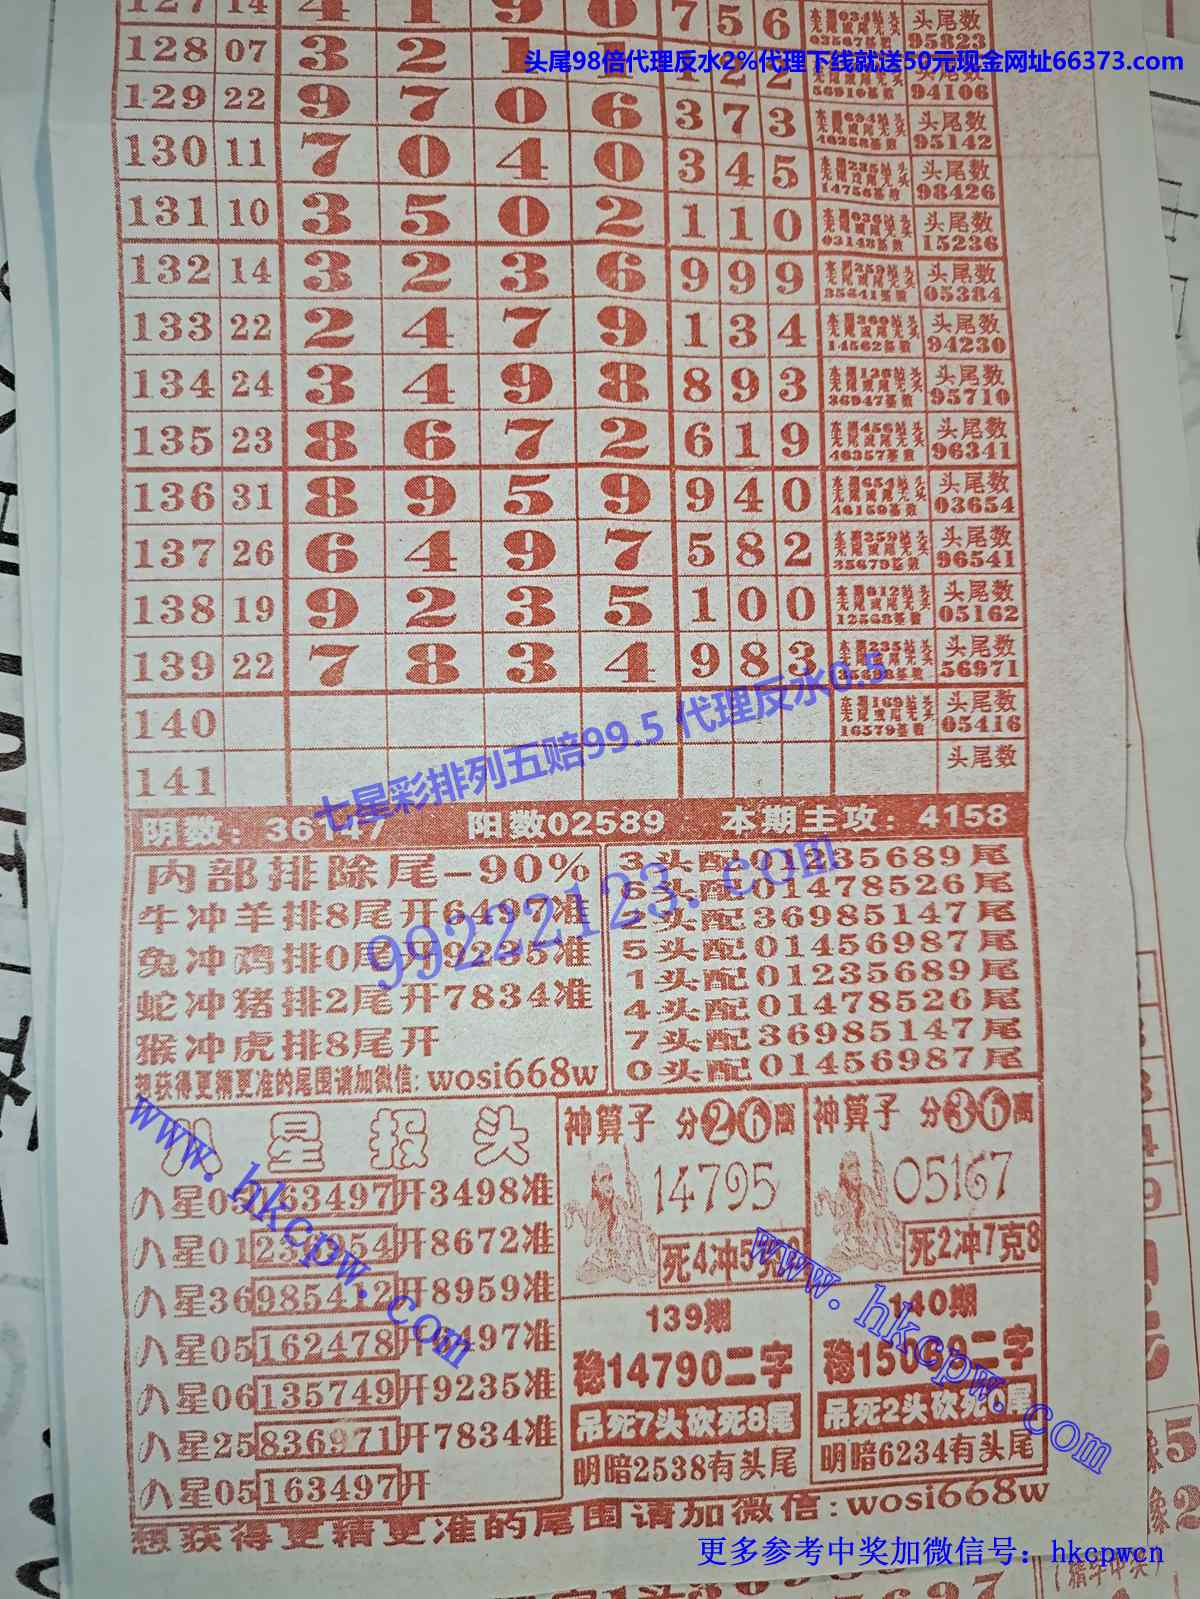 127 14 4 1 9 0 7 5 6 头尾数
95823
头尾98倍代理反水2%代理下线就送50元现金网址66373.com
128 07 3 2 1 2 2
94106
129 22 9 7 0 6 3 7 3 头尾数
95142
130 11 7 0 4 0 3 4 5 头尾数
14756基数 98426
131 10 3 5 0 2 1 1 0 头尾数
03148基数 15236
132 14 3 2 3 6 9 9 9 头尾数
35641基数 05384
133 22 2 4 7 9 1 3 4 头尾数
14562基数 94230
134 24 3 4 9 8 8 9 3 头尾数
36947基数 95710
135 23 8 6 7 2 6 1 9 头尾数
46357基数 96341
136 31 8 9 5 9 9 4 0 头尾数
46159基数 03654
137 26 6 4 9 7 5 8 2 头尾数
35679基数 96541
138 19 9 2 3 5 1 0 0 头尾数
12568基数 05162
139 22 7 8 3 4 9 8 3 头尾数
56971
140 头尾数
16579基数 05416
141 头尾数
七星彩排列五赔99.5 代理反水0.5
阴数：36147 阳数02589 本期主攻：4158
内部排除尾-90%
牛冲羊排8尾开6497准
兔冲鸡排0尾开9235准
蛇冲猪排2尾开7834准
猴冲虎排8尾开
想获得更精更准的尾围请加微信：wosi668w
99222123.com
3头配01235689尾
6头配01478526尾
2头配36985147尾
5头配01456987尾
1头配01235689尾
4头配01478526尾
7头配36985147尾
0头配01456987尾
八星报头
八星05163497开3498准
八星01 开8672准
八星36985412开8959准
八星05162478开6497准
八星06135749开9235准
八星25836971开7834准
八星05163497开
www.hkcpw.com
神算子 分26离
14795
死4冲5克
神算子 分36离
05167
死2冲7克8
www.hkcpw.com
139期
稳14790二字
吊死7头砍死8尾
明暗2538有头尾
140期
二字
吊死2头砍死 尾
明暗6234有头尾
想获得更精更准的尾围请加微信：wosi668w
更多参考中奖加微信号：hkcpwcn